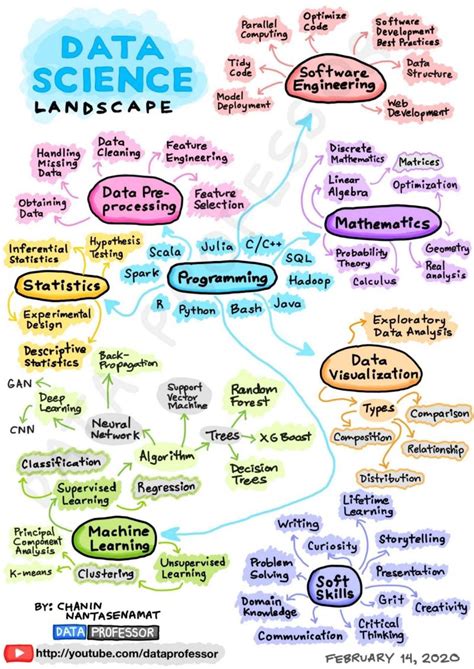 DATA
SCIENCE
LANDSCAPE
Parallel
Computing
Optimize
Code
Software
Development
Best Practices
Tidy
Code
Software
Engineering
Data
Structure
Model
Deployment
Web
Development
Handling
Missing
Data
Data
Cleaning
Feature
Engineering
Obtaining
Data
Data Pre-
processing
Feature
Selection
Discrete
Mathematics
Matrices
Linear
Algebra
Optimization
Mathematics
Probability
Theory
Calculus
Geometry
Real
analysis
Inferential
Statistics
Hypothesis
Testing
Statistics
Experimental
Design
Descriptive
Statistics
Scala
Julia
C/C++
SQL
Spark
Programming
Hadoop
R
Python
Bash
Java
Exploratory
Data Analysis
Data
Visualization
Types
Comparison
Composition
Relationship
Distribution
Back-
Propagation
GAN
Deep
Learning
CNN
Neural
Network
Support
Vector
Machine
Random
Forest
Algorithm
Trees
XG Boost
Decision
Trees
Classification
Supervised
Learning
Regression
Principal
Component
Analysis
Machine
Learning
K-means
Clustering
Unsupervised
Learning
Lifetime
Learning
Writing
Curiosity
Storytelling
Problem
Solving
Presentation
Soft
Skills
Domain
Knowledge
Grit
Creativity
Communication
Critical
Thinking
BY: CHANIN
NANTASENAMAT
DATA PROFESSOR
http://youtube.com/dataprofessor
FEBRUARY 14, 2020
DATA PROFESSOR